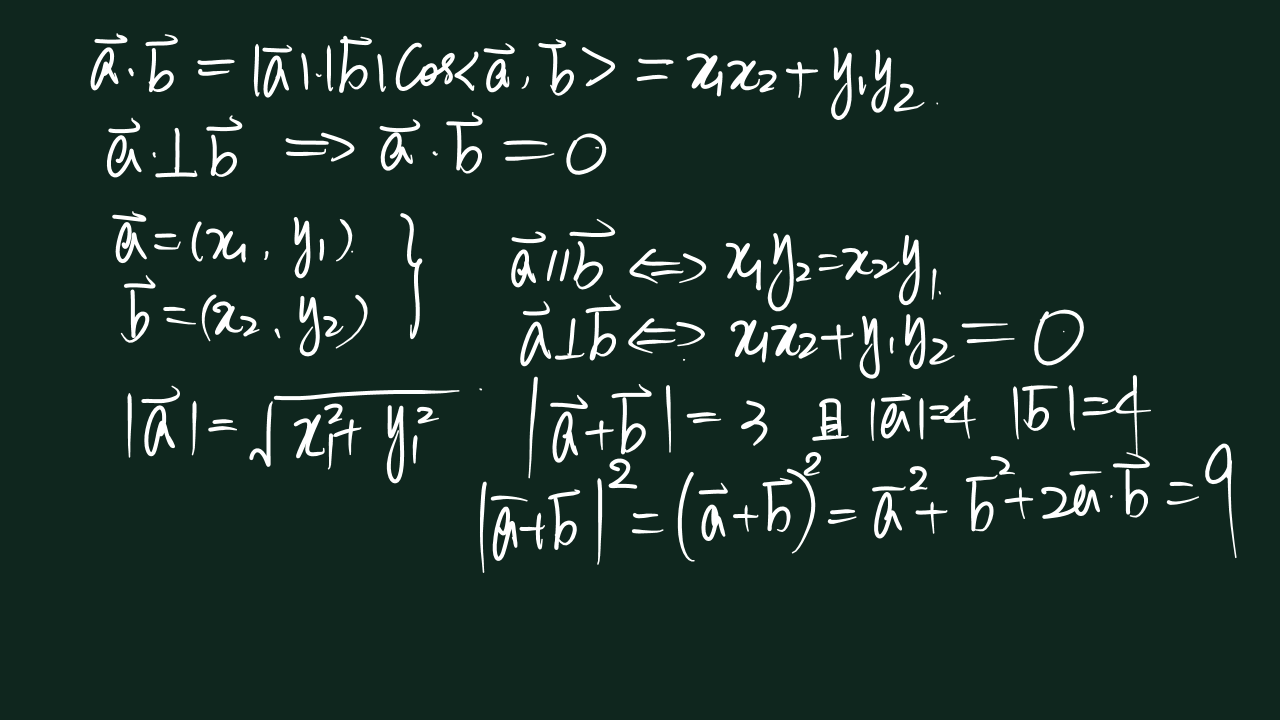 a⃗·b⃗ = |a⃗|·|b⃗|Cos<a⃗, b⃗> = x₁x₂+y₁y₂
a⃗·⊥b⃗ ⟹ a⃗·b⃗=0
a⃗=(x₁, y₁)
b⃗=(x₂, y₂) }
a⃗//b⃗ ⟺ x₁y₂=x₂y₁
a⃗⊥b⃗ ⟺ x₁x₂+y₁y₂=0
|a⃗|=√(x₁²+y₁²)
|a⃗+b⃗|=3 且|a⃗|=4 |b⃗|=4
|a⃗+b⃗|²=(a⃗+b⃗)²=a⃗²+b⃗²+2a⃗·b⃗=9